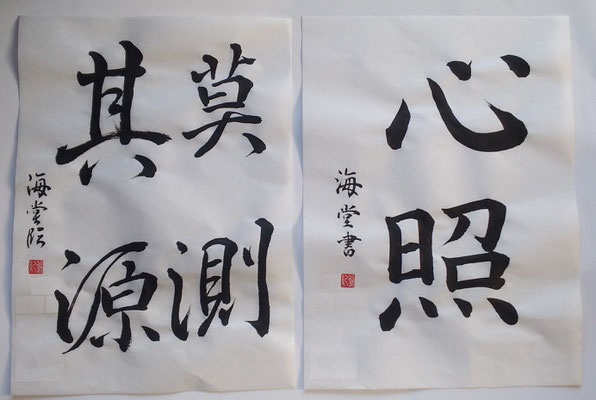 心照
海堂書
莫測
其源
海堂臨